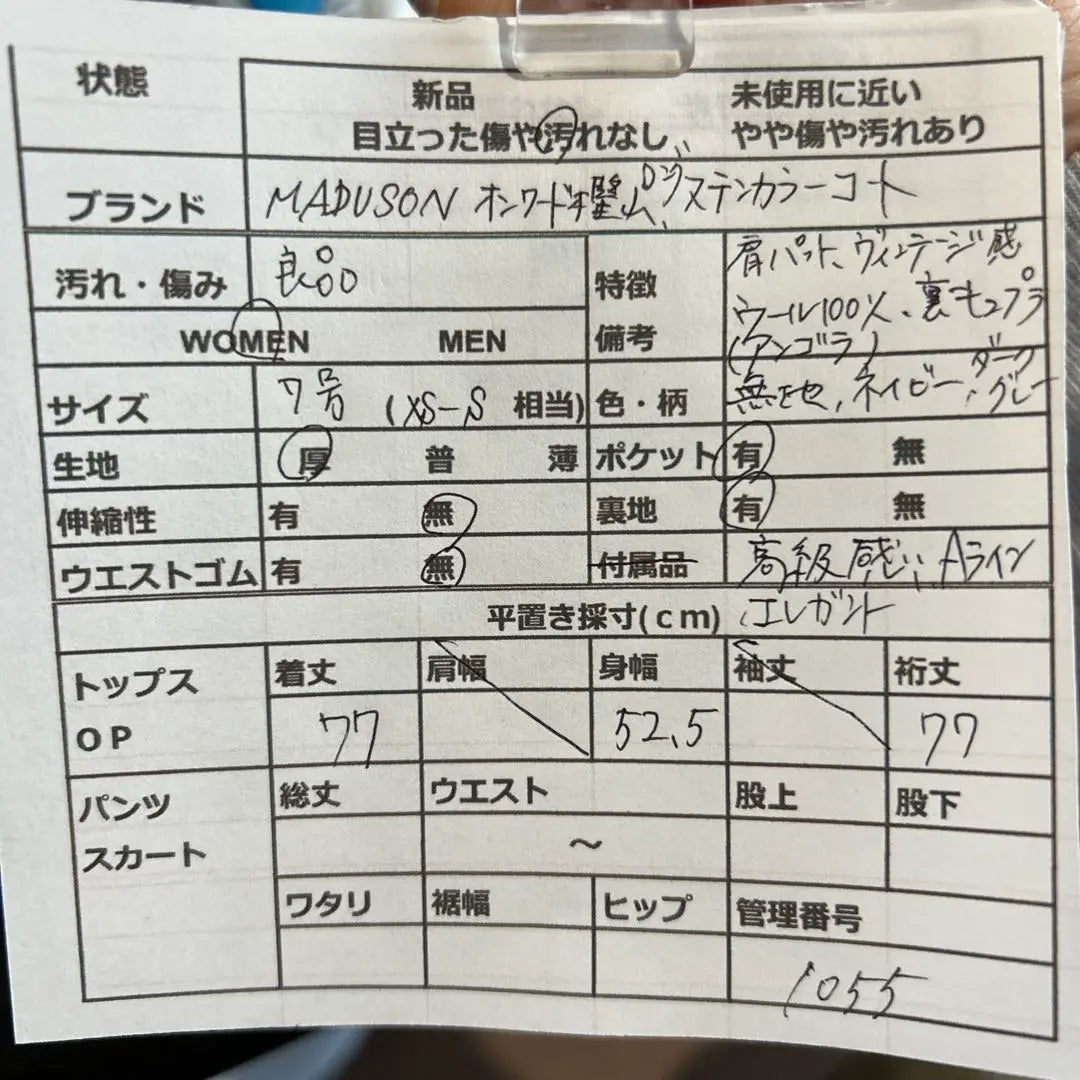 状態
新品 未使用に近い
目立った傷や汚れなし やや傷や汚れあり
ブランド MADUSON オンワード樫山 ロング ステンカラーコート
汚れ・傷み 良品
特徴
備考
肩パット、ヴィンテージ感
ウール100%、裏キュプラ
(アンゴラ)
WOMEN MEN
サイズ 7号 (XS-S 相当)
色・柄 無地、ネイビー、ダークグレー
生地 厚 普 薄 ポケット 有 無
伸縮性 有 無 裏地 有 無
ウエストゴム 有 無 付属品 高級感、Aライン
平置き採寸(cm) エレガント
トップス
OP
着丈 肩幅 身幅 袖丈 裄丈
77 52.5 77
パンツ
スカート
総丈 ウエスト 股上 股下
～
ワタリ 裾幅 ヒップ 管理番号
1055